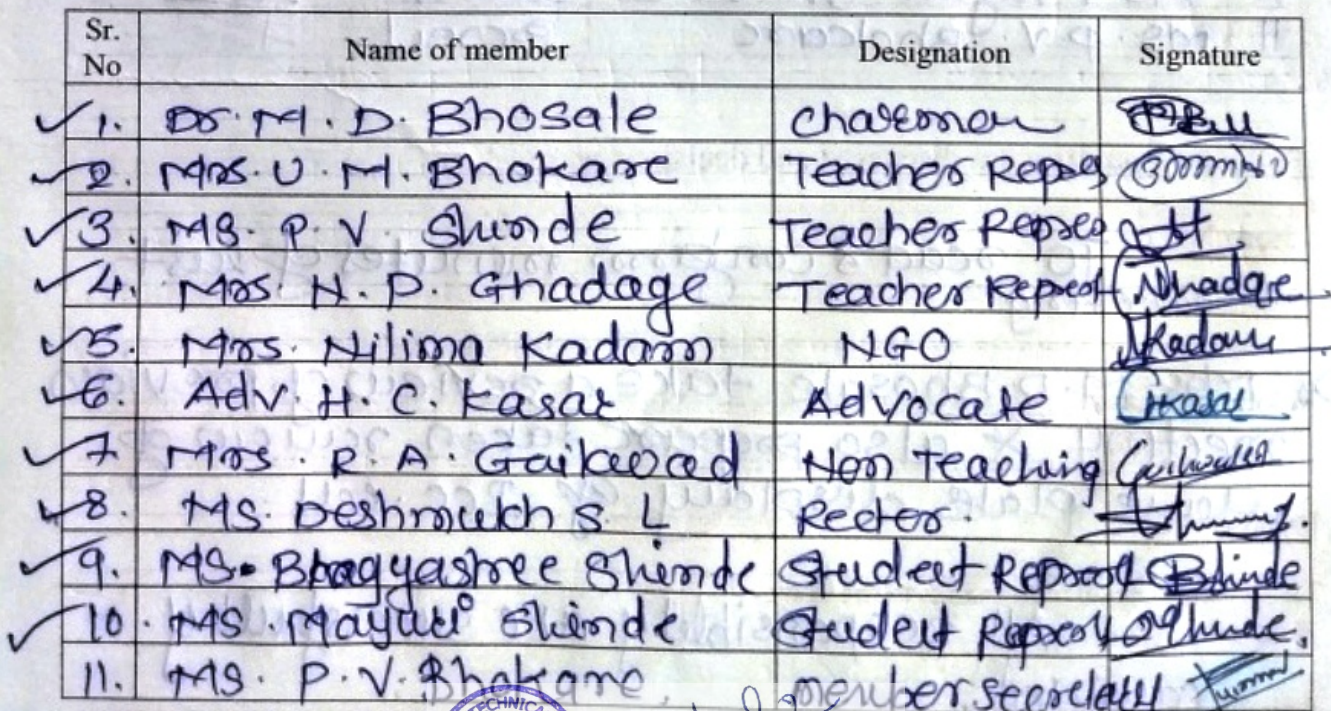 Sr. No Name of member Designation Signature
1. Dr. M. D. Bhosale Chairman
2. Mrs. U. M. Bhokare Teacher Repres
3. Ms. P. V. Shinde Teacher Repres
4. Mrs. N. D. Ghadage Teacher Represt Nhadge
5. Mrs. Nilima Kadam NGO NKadam
6. Adv. H. C. Kasar Advocate HKasar
7. Mrs. R. A. Gaikwad Non Teaching
8. Ms. Deshmukh S. L Recter.
9. Ms. Bhagyashree Shinde Student Represt BShinde
10. Ms. Mayuri Shinde Student Represt
11. Ms. P. V. Bhokare. member secretary
TECHNICA